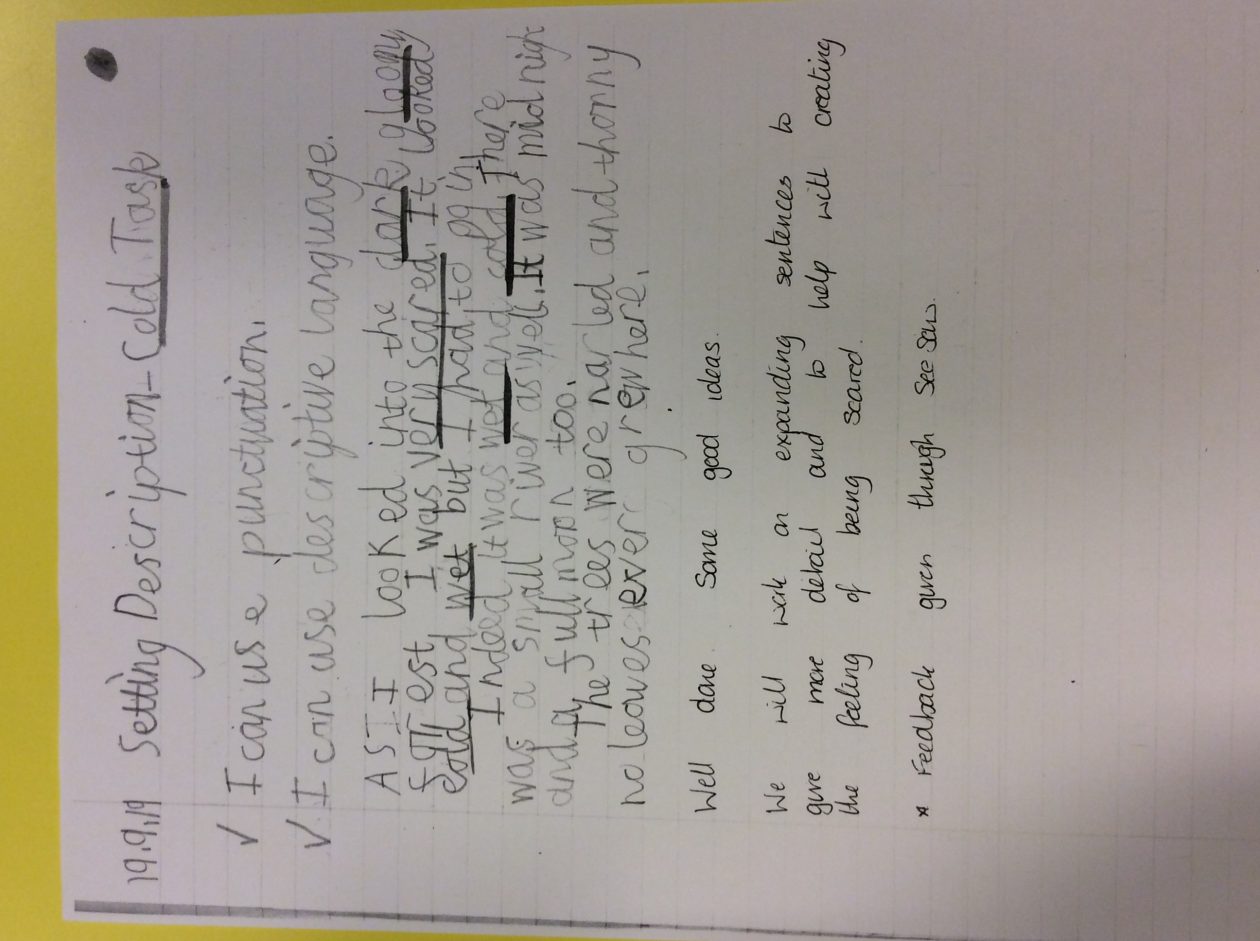 19.9.19 Setting Description - Cold Task
✓ I can use punctuation.
✓ I can use descriptive language.
AS I I looked into the dark gloomy
forest I was very scared. It looked
cold and wet but I had to go in
Indeed it was wet and cold. There
was a small river as well. It was mid nigh
and a full moon too.
The trees were narled and thorny
no leaves ever grew here.
Well done Some good ideas.
We will work on expanding sentences to
give more detail and to help will creating
the feeling of being scared.
* Feedback given through See Saw.